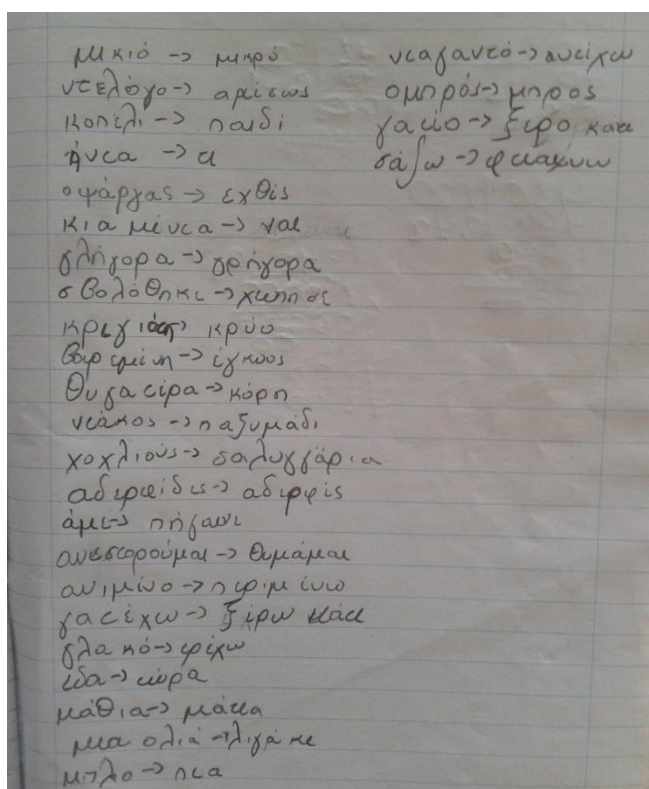 μικιό -> μικρό
ντελόγο -> αμέσως
κοπέλι -> παιδί
ήντα -> τι
οψάργας -> εχθές
κια μέντα -> ναι
γλήγορα -> γρήγορα
σβολόθηκε -> χτύπησε
κρεγιότη -> κρύο
βαρεμένη -> έγκυος
θυγατέρα -> κόρη
ντάκος -> παξυμάδι
χοχλιούς -> σαλυγγάρια
αδερφίδες -> αδερφές
άμε -> πήγαινε
ανεστορούμαι -> θυμάμαι
ανιμένω -> περιμένω
κατέχω -> ξέρω κάτι
γλακό -> τρέχω
εδα -> τώρα
μάθια -> μάτια
μια ολιά -> λιγάκι
μπλο -> πια
νταγαντό -> αντέχω
ομπρός -> μπρος
γατέο -> ξέρο κατι
σάζω -> φτιάχνω